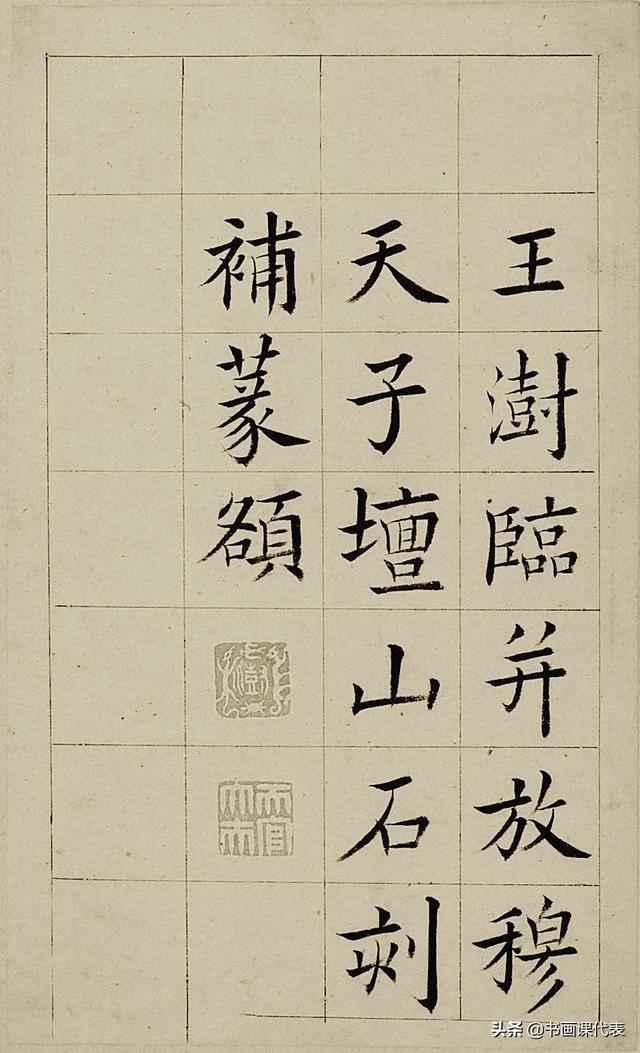 王澍臨并放穆
天子壇山石刻
補篆額
头条 @书画课代表